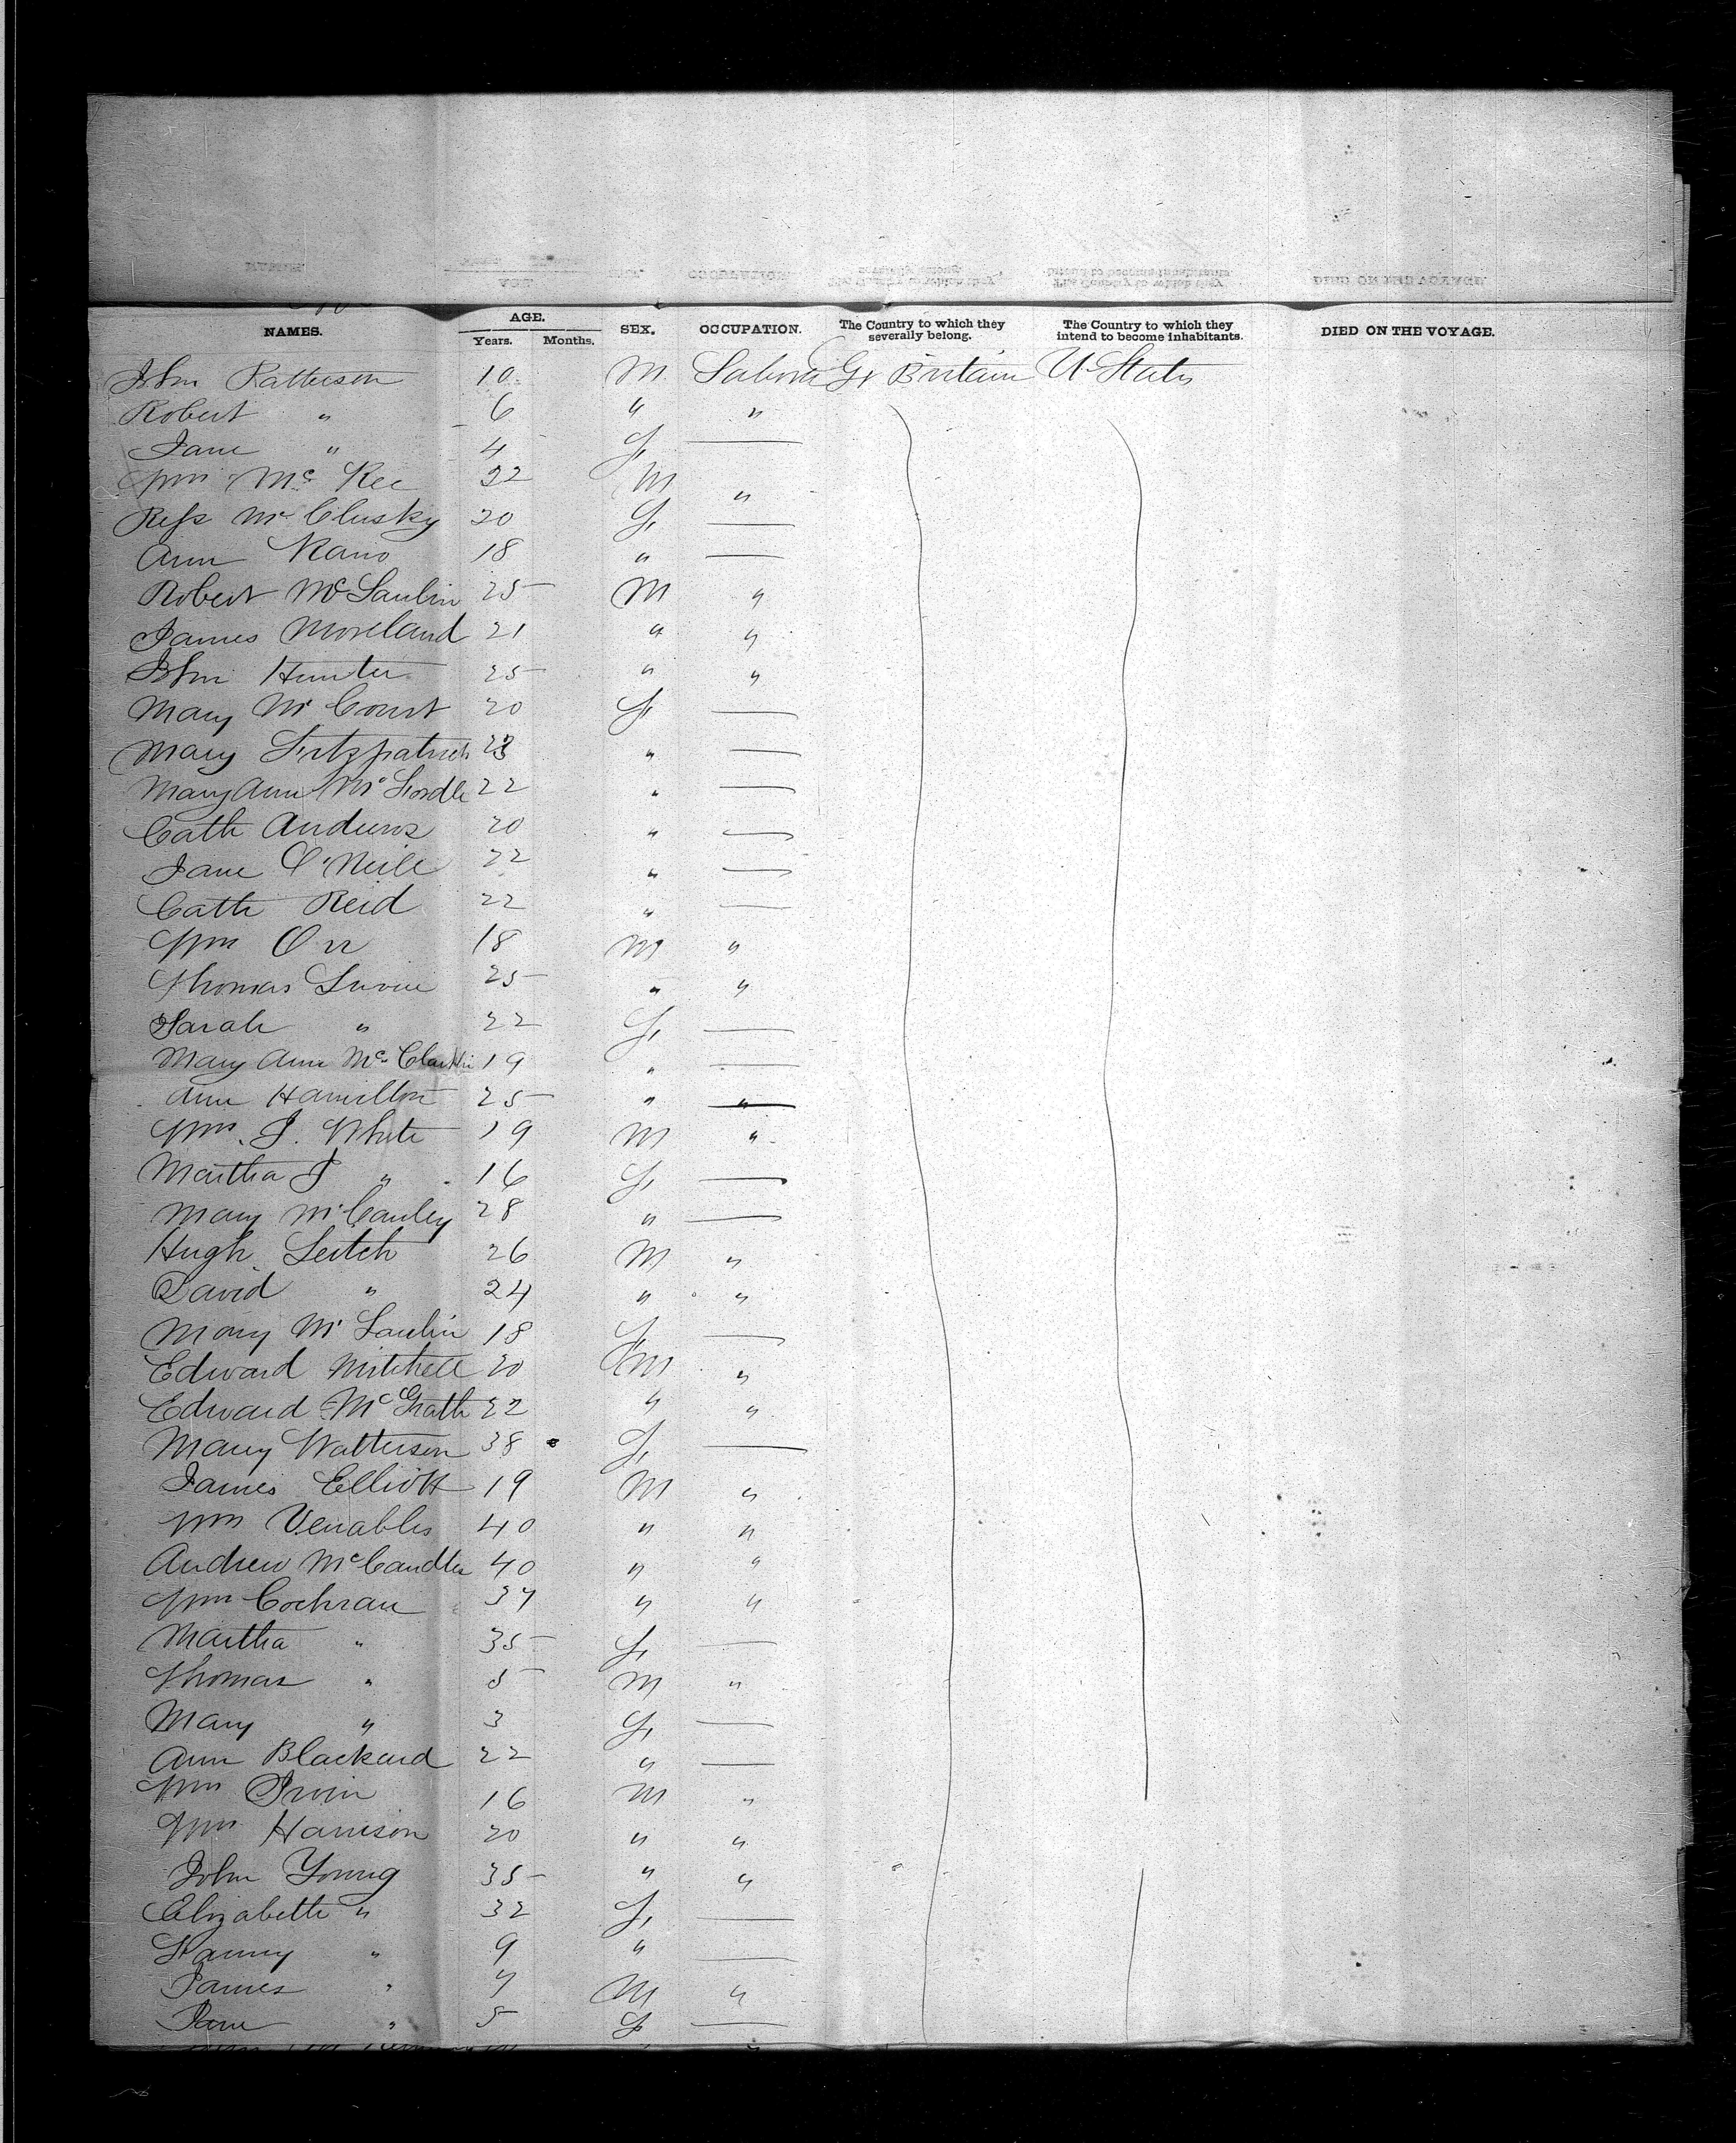 NAMES. AGE. SEX. OCCUPATION. The Country to which they severally belong. The Country to which they intend to become inhabitants. DIED ON THE VOYAGE.
Years. Months.
John Patterson 10 M Labour Gt Britain U States
Robert " 6 " "
Jane " 4 F —
Wm McKee 22 M "
McClusky 20 F —
Ann Kane 18 " —
Robert McLaulin 25 M "
James Moreland 21 " "
John Hunter 25 " "
Mary McCourt 20 F —
Mary Fitzpatrick 23 " —
Mary Ann 22 " —
Cath Andrews 20 " —
Jane O'Neill 22 " —
Cath Reid 22 " —
Wm Orr 18 M "
Thomas 25 " "
Sarah " 22 F —
Mary Ann 19 " —
Ann Hamilton 25 " —
Wm. J. White 19 M "
Martha J " 16 F —
Mary McCauley 28 " —
Hugh Leitch 26 M "
David " 24 " "
Mary McLaulin 18 F —
Edward Mitchell 20 M "
Edward McGrath 22 " "
Mary Watterson 38 F —
James Elliott 19 M "
Wm Venables 40 " "
Andrew McCandles 40 " "
Wm Cochran 34 " "
Martha " 35 F —
Thomas " 5 M "
Mary " 3 F —
Ann Blackard 22 " —
Wm Irvin 16 M "
Wm Harrison 20 " "
John Young 35 " "
Elizabeth " 32 F —
Fanny " 9 " —
James " 7 M "
Jane " 5 F —